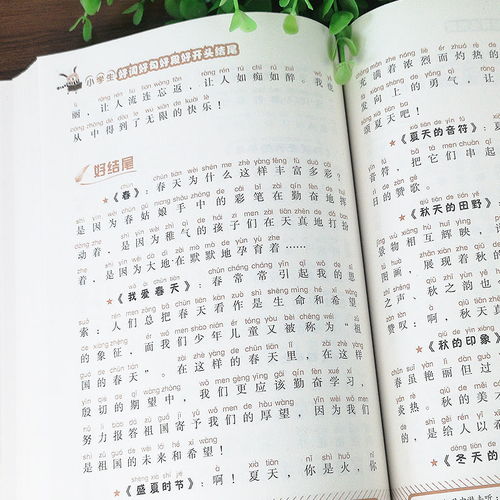 小学生好词好句好段好开头结尾
丽，让人流连忘返，让人如痴如醉。我也
从中得到了无限的快乐！
好结尾
★《春》：春天为什么这样丰富多彩？
是因为春姑娘手中的彩笔在勤奋地挥
动着，是因为稚气的孩子们在天真地打扮
着，是因为大地在默默地孕育着……
★《我爱春天》：春常常引起我的思
索：人们总把春天看作是生命和希望
的象征，而我们少年儿童又被称为“祖
国的春天”。在这样的春天里，在这样
殷切的期望中，我们更应该勤奋学习，
努力报答祖国寄予我们的厚望，因为我们
是祖国的未来和希望！
★《盛夏时节》：啊！夏天，你是火，你
充满着浓烈而灼热的
发向上的勇气，让
颂夏天吧！
★《夏天的音符》
音符，把它们串起
日的赞歌。
★《秋天的田野》
景物相互辉映，
图画，展现着秋的
之声、秋之韵也
赞叹：啊，秋天真
★《秋的印象》
春虽艳丽但过
炎热。秋的美不
的，是给人以希
★《冬天的